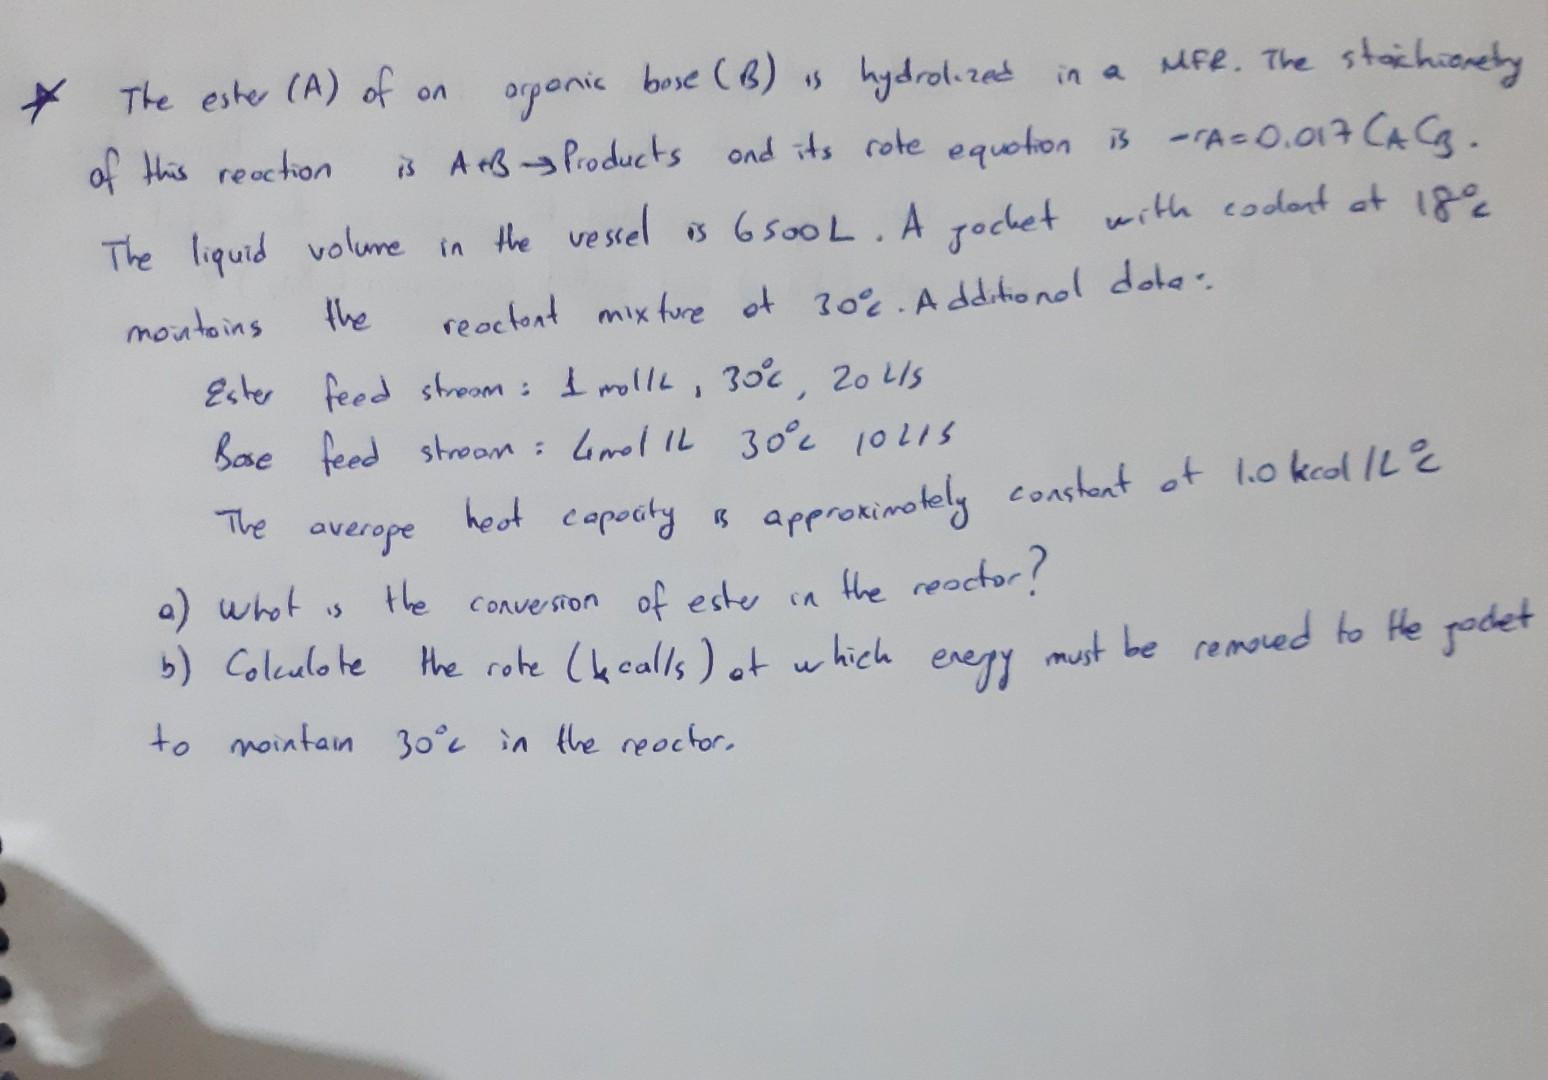 * The ester (A) of on organic base (B) is hydrolized in a MFR. The stoichiometry
of this reaction is A+B → Products and its rate equation is -rA = 0.017 CA CB.
The liquid volume in the vessel is 6500L. A jacket with coolant at 18°C
maintains the reactant mixture at 30°C. Additional data:
Ester feed stream : 1 mol/L, 30°C, 20 L/s
Base feed stream : 4mol/L 30°C 10L/s
The average heat capacity is approximately constant at 1.0 kcal/L°C
a) What is the conversion of ester in the reactor?
b) Calculate the rate (kcal/s) at which energy must be removed to the jacket
to maintain 30°C in the reactor.